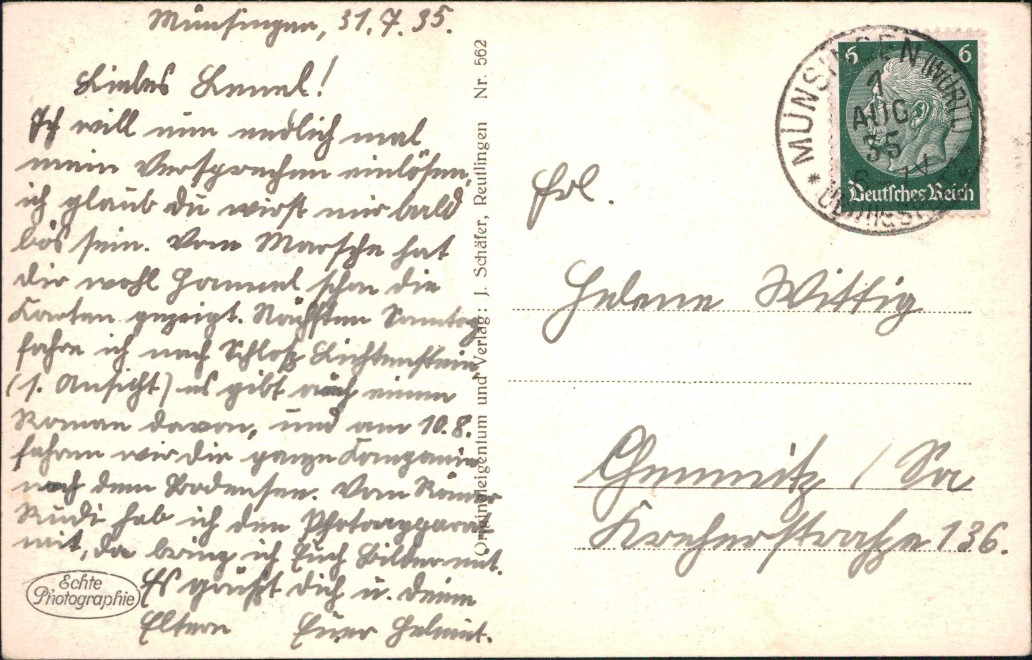 Münsingen, 31.7.35.
Liebes Lenel!
Ich will nun endlich mal
mein Versprechen einlösen,
ich glaub du wirst mir bald
bös sein. Vom Marsche hat
dir wohl Hannel schon die
Karten gezeigt. Nächsten Sonntag
fahre ich nach Schloß Lichtenstein
(s. Ansicht) es gibt auch einen
Roman davon, und am 10.8.
fahren wir die ganze Kompanie
nach dem Bodensee. Vom Römer
Rudi hab ich den Photoapparat
mit, da bring ich Euch Bilder mit.
Es grüßt Dich u. Deine
Eltern Euer Helmut.
Echte
Photographie
Originaleigentum und Verlag: J. Schäfer, Reutlingen Nr. 562
6 6
Deutsches Reich
MÜNSINGEN (WÜRTT)
1
AUG
35
Frl.
Helene Wittig
Chemnitz / Sa
Kreherstraße 136.